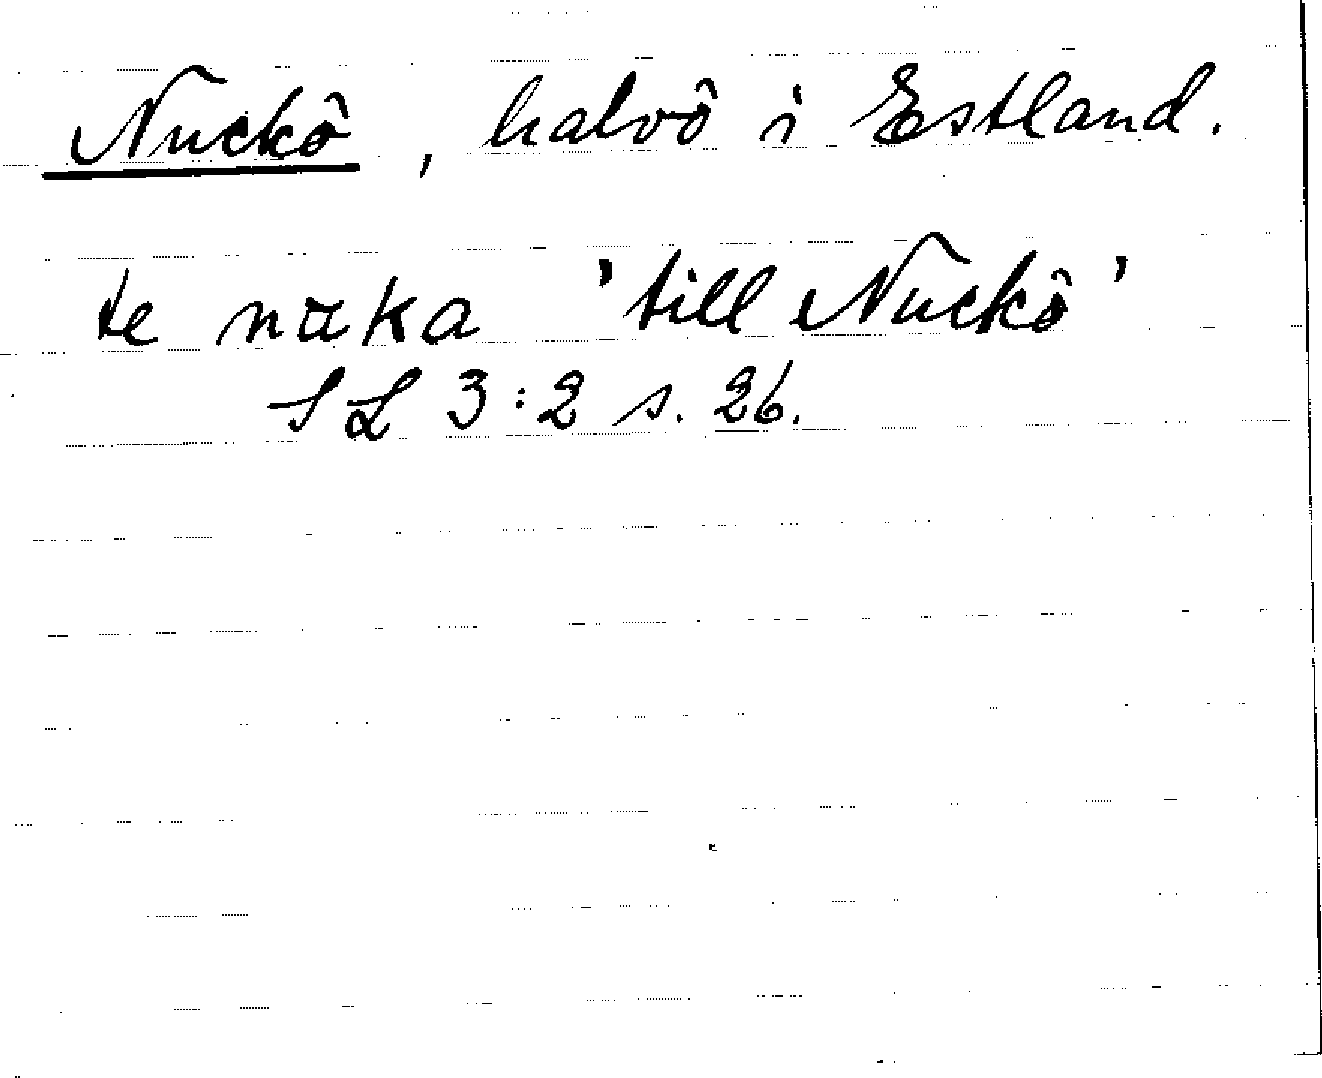 Nuckö, halvö i Estland.
te nūka 'till Nuckö'
SL 3:2 s. 26.